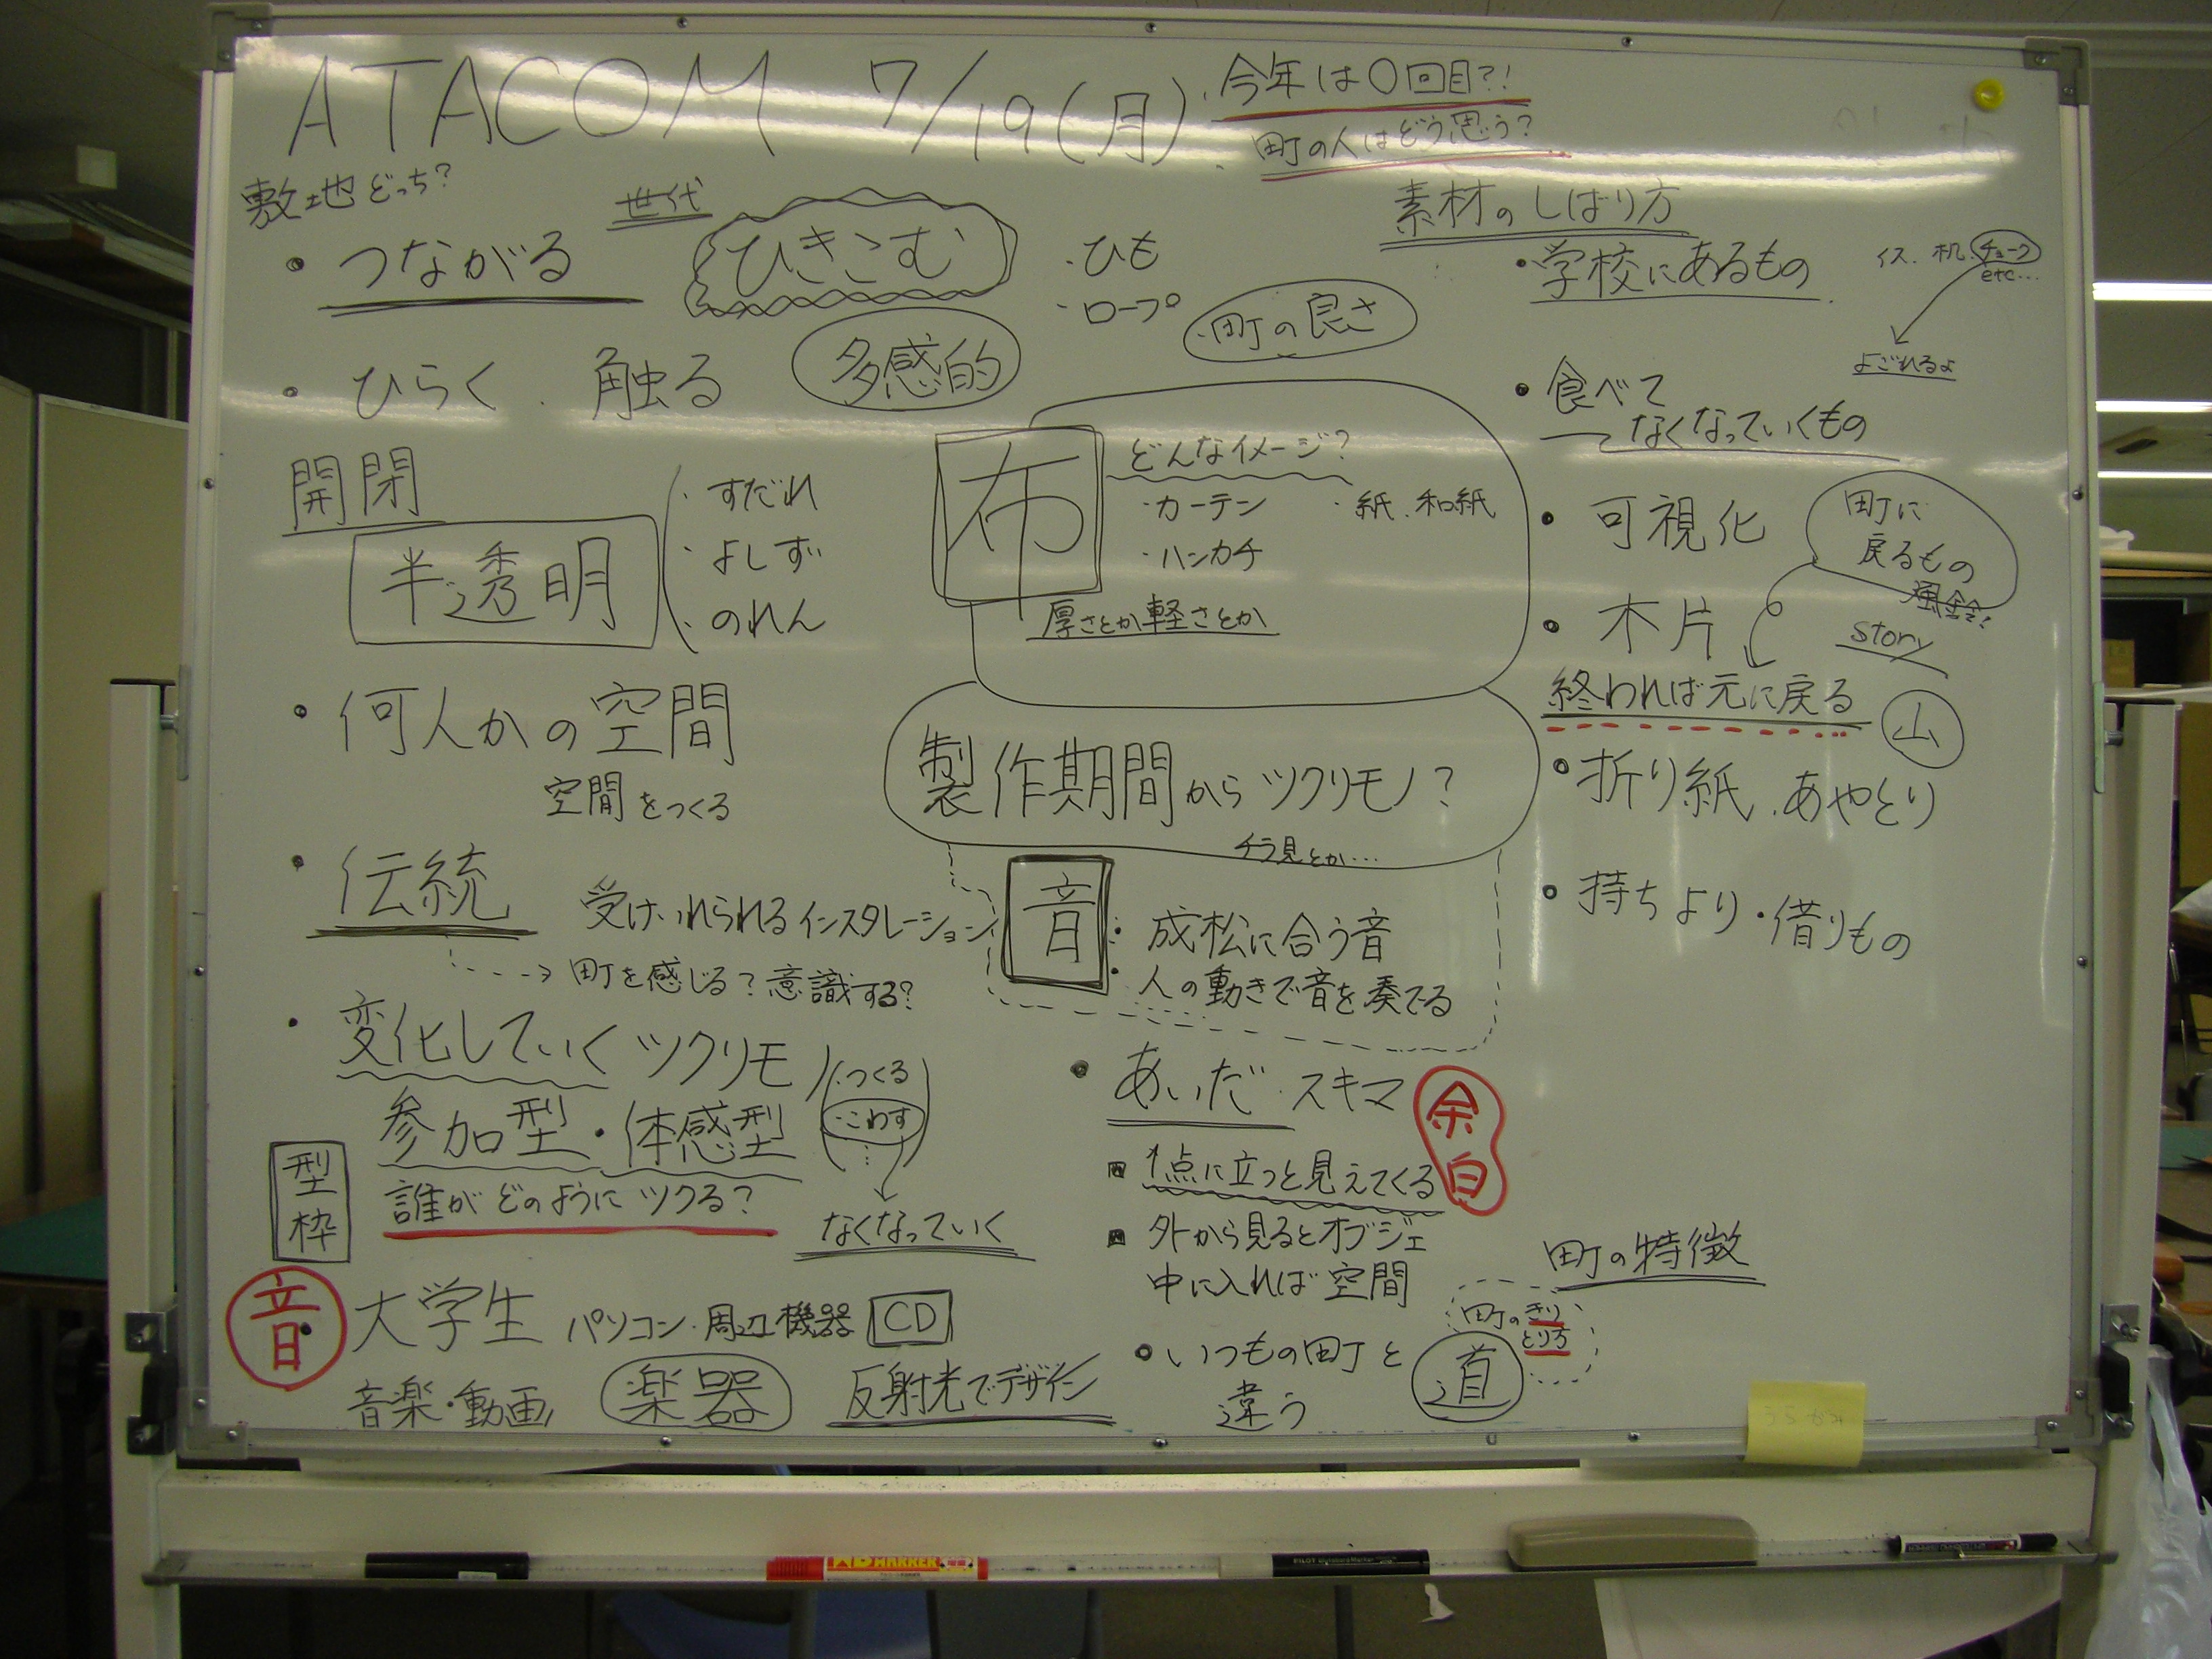 ATACOM 7/19(月)
・今年は〇回目?!
・町の人はどう思う?
敷地どっち?
世代
・つながる
ひきこむ
・ひも
・ロープ
・町の良さ
・ひらく . 触る
多感的
開閉
半透明
・すだれ
・よしず
・のれん
布
どんなイメージ?
・カーテン
・ハンカチ
・紙.和紙
厚さとか軽さとか
・何人かの空間
空間をつくる
製作期間からツクリモノ?
チラ見とか…
・伝統
受けいれられるインスタレーション
町を感じる?意識する?
音
・成松に合う音
・人の動きで音を奏でる
・変化していくツクリモノ
参加型・体感型
・つくる
・こわす
なくなっていく
型枠
誰がどのようにツクる?
音
大学生 パソコン・周辺機器 CD
音楽・動画 楽器 反射光でデザイン
・あいだ・スキマ
余白
1点に立つと見えてくる
外から見るとオブジェ
中に入れば空間
・いつもの町と
違う
道
町のきり
とり方
町の特徴
素材のしばり方
・学校にあるもの
イス.机.チョーク
etc…
よごれるよ
・食べて
なくなっていくもの
・可視化
町に
戻るもの
風鈴!
・木片
story
終われば元に戻る
山
・折り紙.あやとり
・持ちより・借りもの
WB MARKER
PILOT